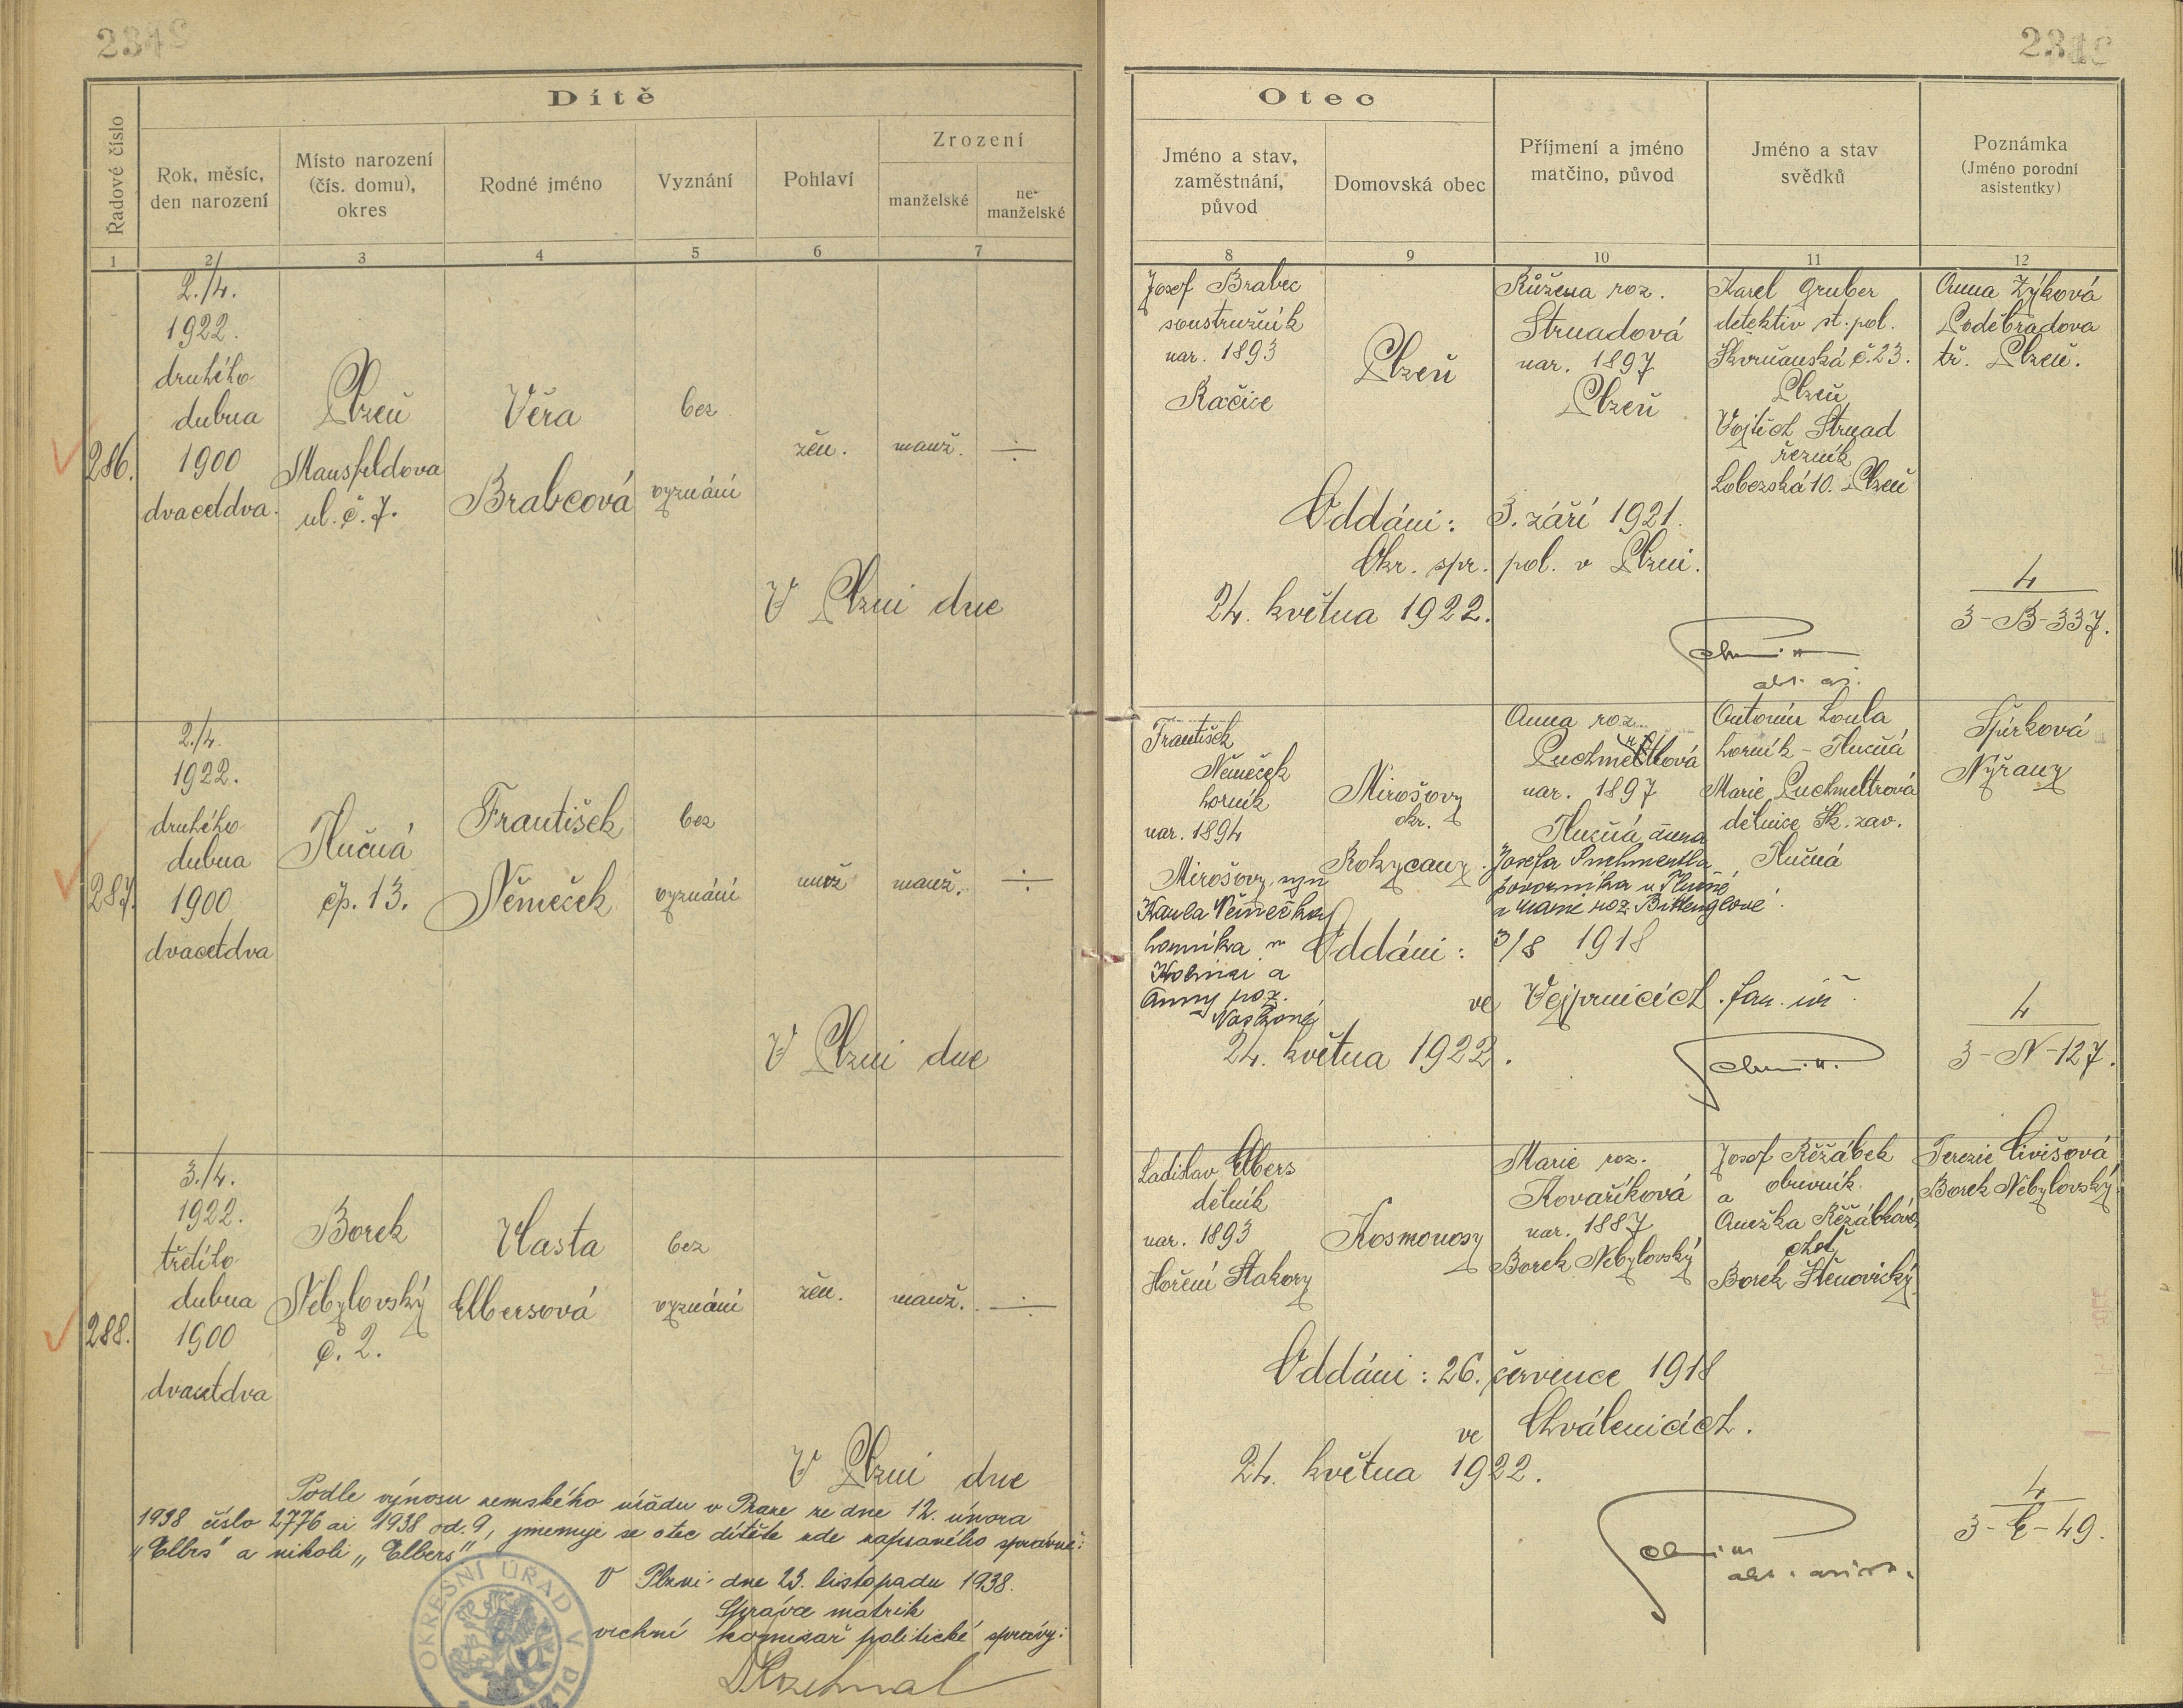 Dítě
Řadové číslo
Rok, měsíc,
den narození
Místo narození
(čís. domu),
okres
Rodné jméno
Vyznání
Pohlaví
Zrození
manželské
ne-
manželské
1
2
3
4
5
6
7
286.
2./4.
1922.
druhého
dubna
1900
dvacetdva.
Plzeň
Mansfeldova
ul. č. 7.
Věra
Brabcová
bez
vyznání
žen.
manž.
V Plzni dne
287.
2./4.
1922.
druhého
dubna
1900
dvacetdva
Tlučná
čp. 13.
František
Němeček
bez
vyznání
muž
manž.
V Plzni dne
288.
3./4.
1922.
třetího
dubna
1900
dvacetdva
Borek
Nebylovský
č. 2.
Vlasta
Elbersová
bez
vyznání
žen.
manž.
V Plzni dne
Podle výnosu zemského úřadu v Praze ze dne 12. února
1938 číslo 2776 ai 1938 od. 9, jmenuje se otec dítěte zde zapsaného správně:
"Elbrs" a nikoli "Elbers"
V Plzni dne 23. listopadu 1938.
Správce matrik
vrchní komisař politické správy:
OKRESNÍ ÚŘAD V PLZ
Otec
Jméno a stav,
zaměstnání,
původ
Domovská obec
Příjmení a jméno
matčino, původ
Jméno a stav
svědků
Poznámka
(Jméno porodní
asistentky)
8
9
10
11
12
Josef Brabec
soustružník
nar. 1893
Račice
Plzeň
Růžena roz.
Strnadová
nar. 1897
Plzeň
Karel Gruber
detektiv st. pol.
Skvrňanská č. 23.
Plzeň
Vojtěch Strnad
řezník
Lobezská 10. Plzeň
Anna Zýková
Poděbradova
tř. Plzeň.
Oddáni: 3. září 1921.
Okr. spr. pol. v Plzni.
24. května 1922.
4
3-B-337.
František
Němeček
horník
nar. 1894
Mirošovy, syn
Karla Němečka,
horníka v
a
Anny roz.
Mirošovy
okr.
Rokycany.
Anna roz.
nar. 1897
Tlučná dcera
Josefa Puchmeltla
v Tlučné
a Marie roz.
Antonín Loula
horník - Tlučná
Marie Puchmeltrová
dělnice Šk. záv.
Tlučná
Špirková
Nýřany
Oddáni: 3/8 1918
ve Vejprnicích. far. úř.
24. května 1922.
4
3-N-127.
Ladislav Elbers
dělník
nar. 1893
Hoření Stakory
Kosmonosy
Marie roz.
Kovaříková
nar. 1887
Borek Nebylovský
Josef Řeřábek
a obuvník
Anežka Řeřábková
choť
Borek Štěnovický
Terezie Civišová
Borek Nebylovský.
Oddáni: 26. července 1918
ve Chválenicích.
24. května 1922.
4
3-E-49.